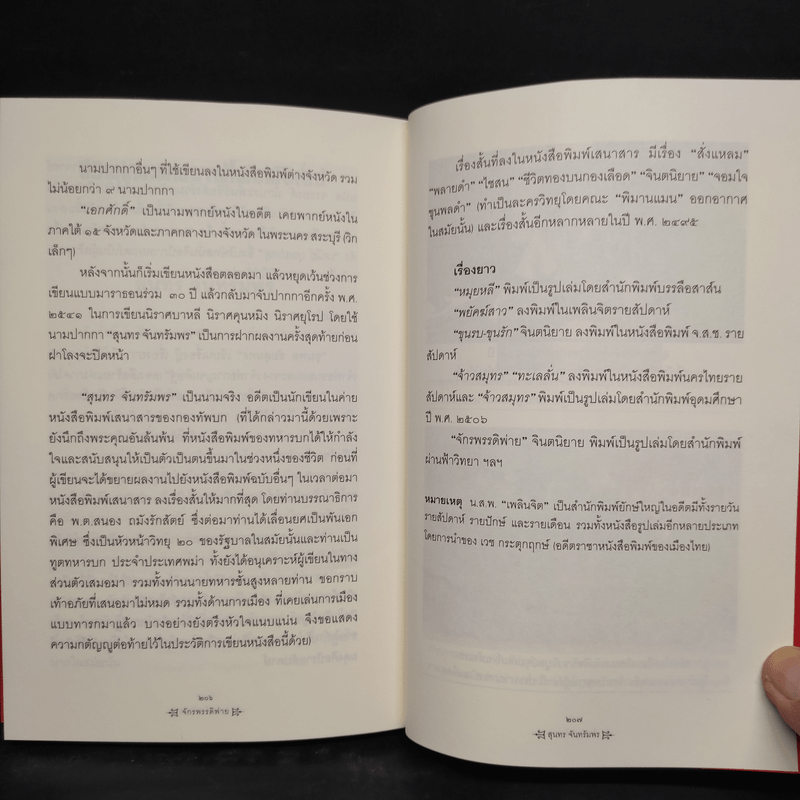 นามปากกาอื่นๆ ที่ใช้เขียนลงในหนังสือพิมพ์ต่างจังหวัด รวม
ไม่น้อยกว่า ๙ นามปากกา
“เอกศักดิ์” เป็นนามพากย์หนังในอดีต เคยพากย์หนังใน
ภาคใต้ ๑๕ จังหวัดและภาคกลางบางจังหวัด ในพระนคร สระบุรี (วิก
เล็กๆ)
หลังจากนั้นก็เริ่มเขียนหนังสือตลอดมา แล้วหยุดเว้นช่วงการ
เขียนแบบมาราธอนร่วม ๓๐ ปี แล้วกลับมาจับปากกาอีกครั้ง พ.ศ.
๒๕๔๑ ในการเขียนนิราศบาหลี นิราศคุนหมิง นิราศยุโรป โดยใช้
นามปากกา “สุนทร จันทรัมพร” เป็นการฝากผลงานครั้งสุดท้ายก่อน
ฝาโลงจะปิดหน้า
“สุนทร จันทรัมพร” เป็นนามจริง อดีตเป็นนักเขียนในค่าย
หนังสือพิมพ์เสนาสารของกองทัพบก (ที่ได้กล่าวมานี้ด้วยเพราะ
ยังนึกถึงพระคุณอันล้นพ้น ที่หนังสือพิมพ์ของทหารบกได้ให้กำลัง
ใจและสนับสนุนให้เป็นตัวเป็นตนขึ้นมาในช่วงหนึ่งของชีวิต ก่อนที่
ผู้เขียนจะได้ขยายผลงานไปยังหนังสือพิมพ์ฉบับอื่นๆ ในเวลาต่อมา
หนังสือพิมพ์เสนาสาร ลงเรื่องสั้นให้มากที่สุด โดยท่านบรรณาธิการ
คือ พ.ต.สนอง ถมังรักสัตย์ ซึ่งต่อมาท่านได้เลื่อนยศเป็นพันเอก
พิเศษ ซึ่งเป็นหัวหน้าวิทยุ ๒๐ ของรัฐบาลในสมัยนั้นและท่านเป็น
ทูตทหารบก ประจำประเทศพม่า ทั้งยังได้อนุเคราะห์ผู้เขียนในทาง
ส่วนตัวเสมอมา รวมทั้งท่านนายทหารชั้นสูงหลายท่าน ขอกราบ
เท้าอภัยที่เสนอมาไม่หมด รวมทั้งด้านการเมือง ที่เคยเล่นการเมือง
แบบทารกมาแล้ว บางอย่างยังตรึงหัวใจแนบแน่น จึงขอแสดง
ความกตัญญูต่อท้ายไว้ในประวัติการเขียนหนังสือนี้ด้วย)
๒๐๖
จักรพรรดิพ่าย
เรื่องสั้นที่ลงในหนังสือพิมพ์เสนาสาร มีเรื่อง “สั่งแหลม”
“พลายดำ” “ไซสน” “ชีวิตทองบนกองเลือด” “จินตนิยาย” “จอมใจ
ขุนพลดำ” (ทำเป็นละครวิทยุโดยคณะ “พิมานแมน” ออกอากาศ
ในสมัยนั้น) และเรื่องสั้นอีกหลากหลายในปี พ.ศ. ๒๔๙๕
เรื่องยาว
“หมุยหลี” พิมพ์เป็นรูปเล่มโดยสำนักพิมพ์บรรลือสาส์น
“พยัคฆ์สาว” ลงพิมพ์ในเพลินจิตรายสัปดาห์
“ขุนรบ-ขุนรัก” จินตนิยาย ลงพิมพ์ในหนังสือพิมพ์ จ.ส.ช. ราย
สัปดาห์
“จ้าวสมุทร” “ทะเลลั่น” ลงพิมพ์ในหนังสือพิมพ์นครไทยราย
สัปดาห์และ “จ้าวสมุทร” พิมพ์เป็นรูปเล่มโดยสำนักพิมพ์อุดมศึกษา
ปี พ.ศ. ๒๕๐๖
“จักรพรรดิพ่าย” จินตนิยาย พิมพ์เป็นรูปเล่มโดยสำนักพิมพ์
ผ่านฟ้าวิทยา ฯลฯ
หมายเหตุ น.ส.พ. “เพลินจิต” เป็นสำนักพิมพ์ยักษ์ใหญ่ในอดีตมีทั้งรายวัน
รายสัปดาห์ รายปักษ์ และรายเดือน รวมทั้งหนังสือรูปเล่มอีกหลายประเภท
โดยการนำของ เวช กระตุกฤกษ์ (อดีตราชาหนังสือพิมพ์ของเมืองไทย)
๒๐๗
สุนทร จันทรัมพร